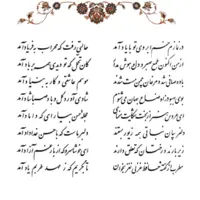 در نمازم خم ابروی تو با یاد آمد حالتی رفت که محراب به فریاد آمد
از من اکنون طمع صبر و دل و هوش مدار کان تحمل که تو دیدی همه بر باد آمد
باده صافی شد و مرغان چمن مست شدند موسم عاشقی و کار به بنیاد آمد
بوی بهبود ز اوضاع جهان می‌شنوم شادی آورد گل و باد صبا شاد آمد
ای عروس هنر از بخت شکایت منما حجله حسن بیارای که داماد آمد
دلفریبان نباتی همه زیور بستند دلبر ماست که با حسن خداداد آمد
زیر بارند درختان که تعلق دارند ای خوشا سرو که از بار غم آزاد آمد
مطرب از گفته حافظ غزلی نغز بخوان تا بگویم که ز عهد طربم یاد آمد